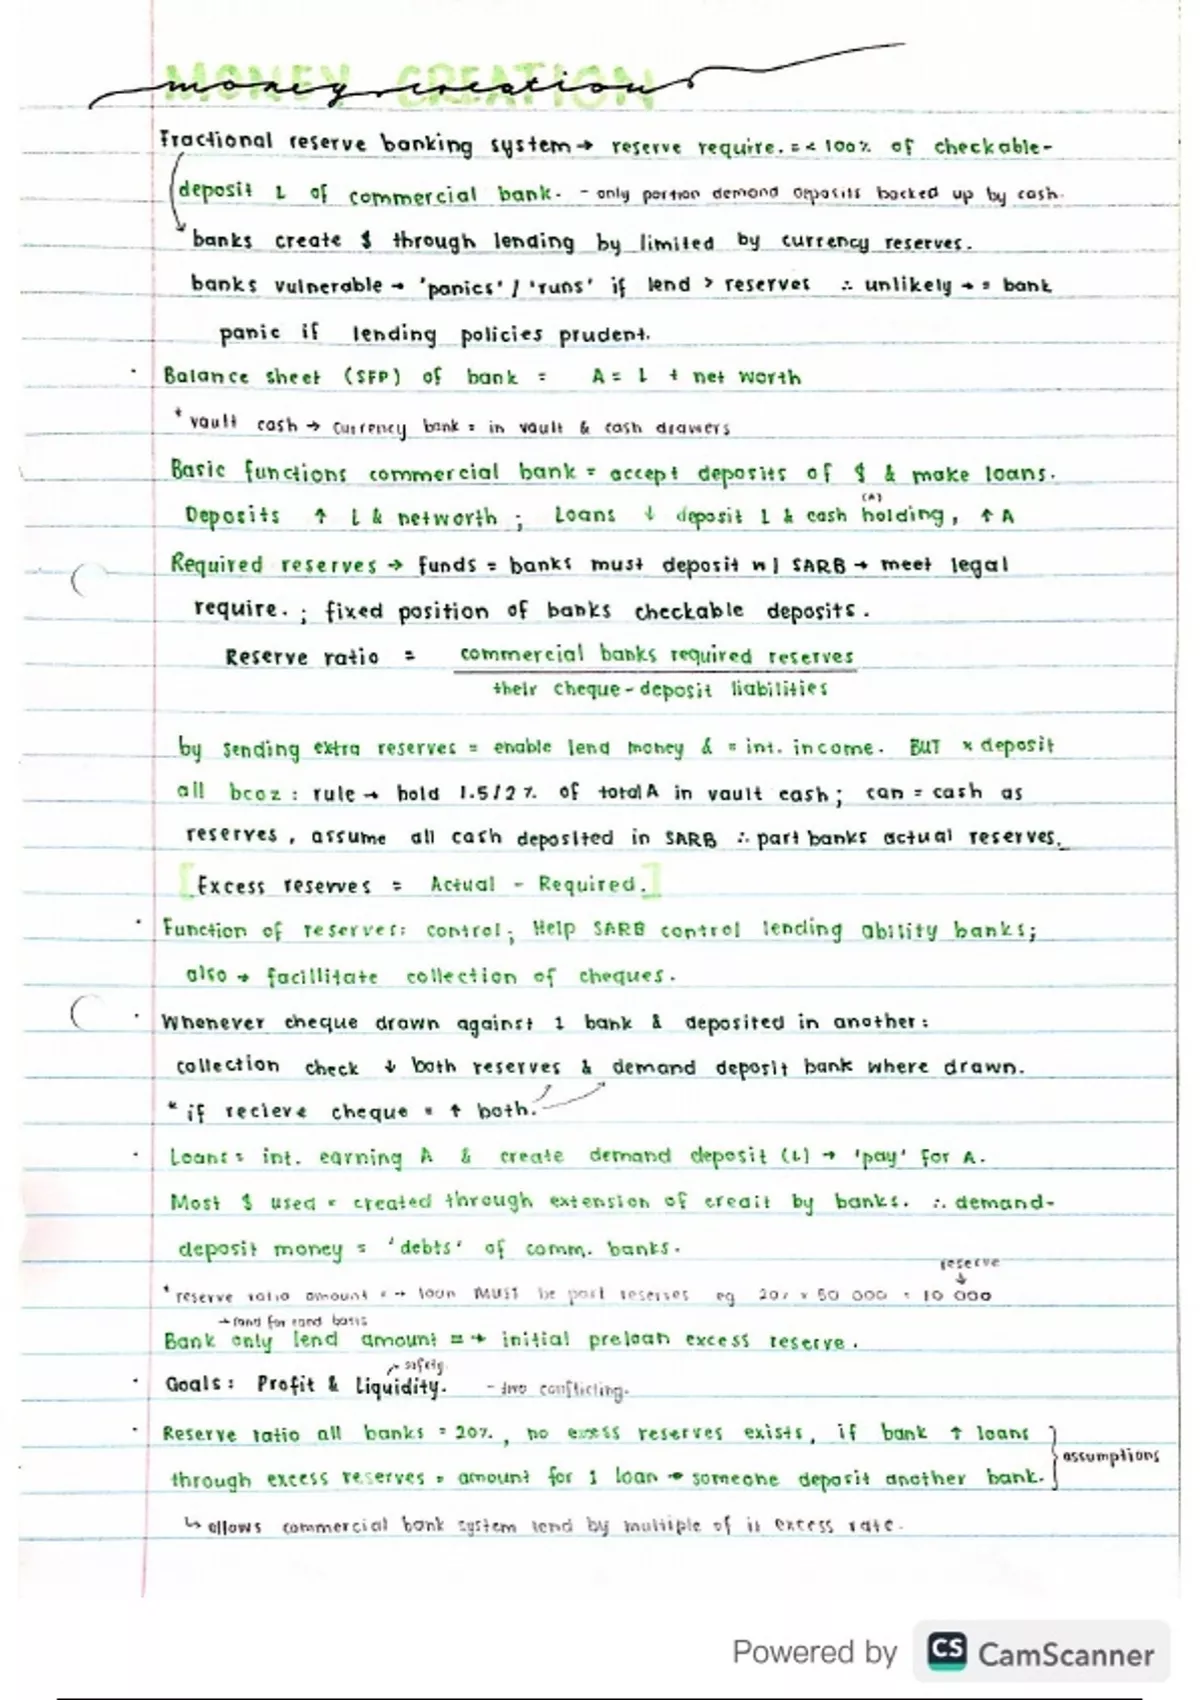 MONEY CREATION
money creation
Fractional reserve banking system → reserve require. = < 100% of checkable-
deposit L of commercial bank. - only portion demand deposits backed up by cash.
banks create $ through lending by limited by currency reserves.
banks vulnerable → 'panics' / 'runs' if lend > reserves ∴ unlikely → = bank
panic if lending policies prudent.
· Balance sheet (SFP) of bank = A = L + net worth
* vault cash → currency bank = in vault & cash drawers
Basic functions commercial bank = accept deposits of $ & make loans.
(A)
Deposits ↑ L & networth ; Loans ↓ deposit L & cash holding, ↑ A
Required reserves → funds = banks must deposit w/ SARB → meet legal
require. ; fixed position of banks checkable deposits.
Reserve ratio = commercial banks required reserves
their cheque-deposit liabilities
by sending extra reserves = enable lend money & = int. income. BUT × deposit
all bcoz : rule → hold 1.5/2 % of total A in vault cash; can = cash as
reserves, assume all cash deposited in SARB ∴ part banks actual reserves.
[Excess reserves = Actual - Required.]
· Function of reserves: control; Help SARB control lending ability banks;
also → facillitate collection of cheques.
· Whenever cheque drawn against 1 bank & deposited in another:
collection check ↓ both reserves & demand deposit bank where drawn.
* if recieve cheque = ↑ both.
· Loans = int. earning A & create demand deposit (L) → 'pay' for A.
Most $ used = created through extension of credit by banks. ∴ demand-
deposit money = 'debts' of comm. banks.
reserve
↓
* reserve ratio amount = → loan MUST be part reserves eg 20% × 50 000 = 10 000
→ rand for rand basis
Bank only lend amount = → initial preloan excess reserve.
safety.
· Goals: Profit & Liquidity. - two conflicting.
· Reserve ratio all banks = 20%, no excess reserves exists, if bank ↑ loans
assumptions
through excess reserves = amount for 1 loan → someone deposit another bank.
↳ allows commercial bank system lend by multiple of it excess rate.
Powered by CS CamScanner